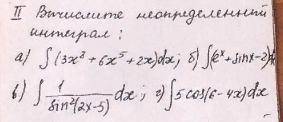 II Вычислите неопределенный
интеграл:
а) ∫(3x² + 6x⁵ + 2x)dx; б) ∫(eˣ + sinx - 2)d
в) ∫ 1/sin²(2x-5) dx; г) ∫5cos(6-4x)dx